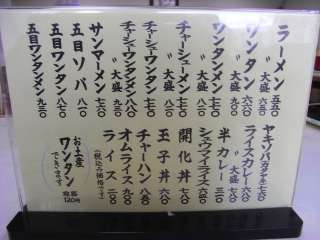 ラーメン 五五〇
〃 大盛 六五〇
ワンタン 六六〇
〃 大盛 七六〇
ワンタンメン 七六〇
〃 大盛
チャーシューメン 七七〇
〃 大盛
チャーシューワンタン 八二〇
チャーシューワンタンメン 九三〇
サンマーメン 七六〇
五目ソバ 八一〇
五目ワンタン 八七〇
五目ワンタンメン 九二〇
ライスカレー 六六〇
半カレー
シュウマイライス 六五〇
開化丼
玉子丼 六六〇
チャーハン
オムライス 九二〇
ライス 二一〇
(税込み価格です)
お土産
ワンタン
できます
120円